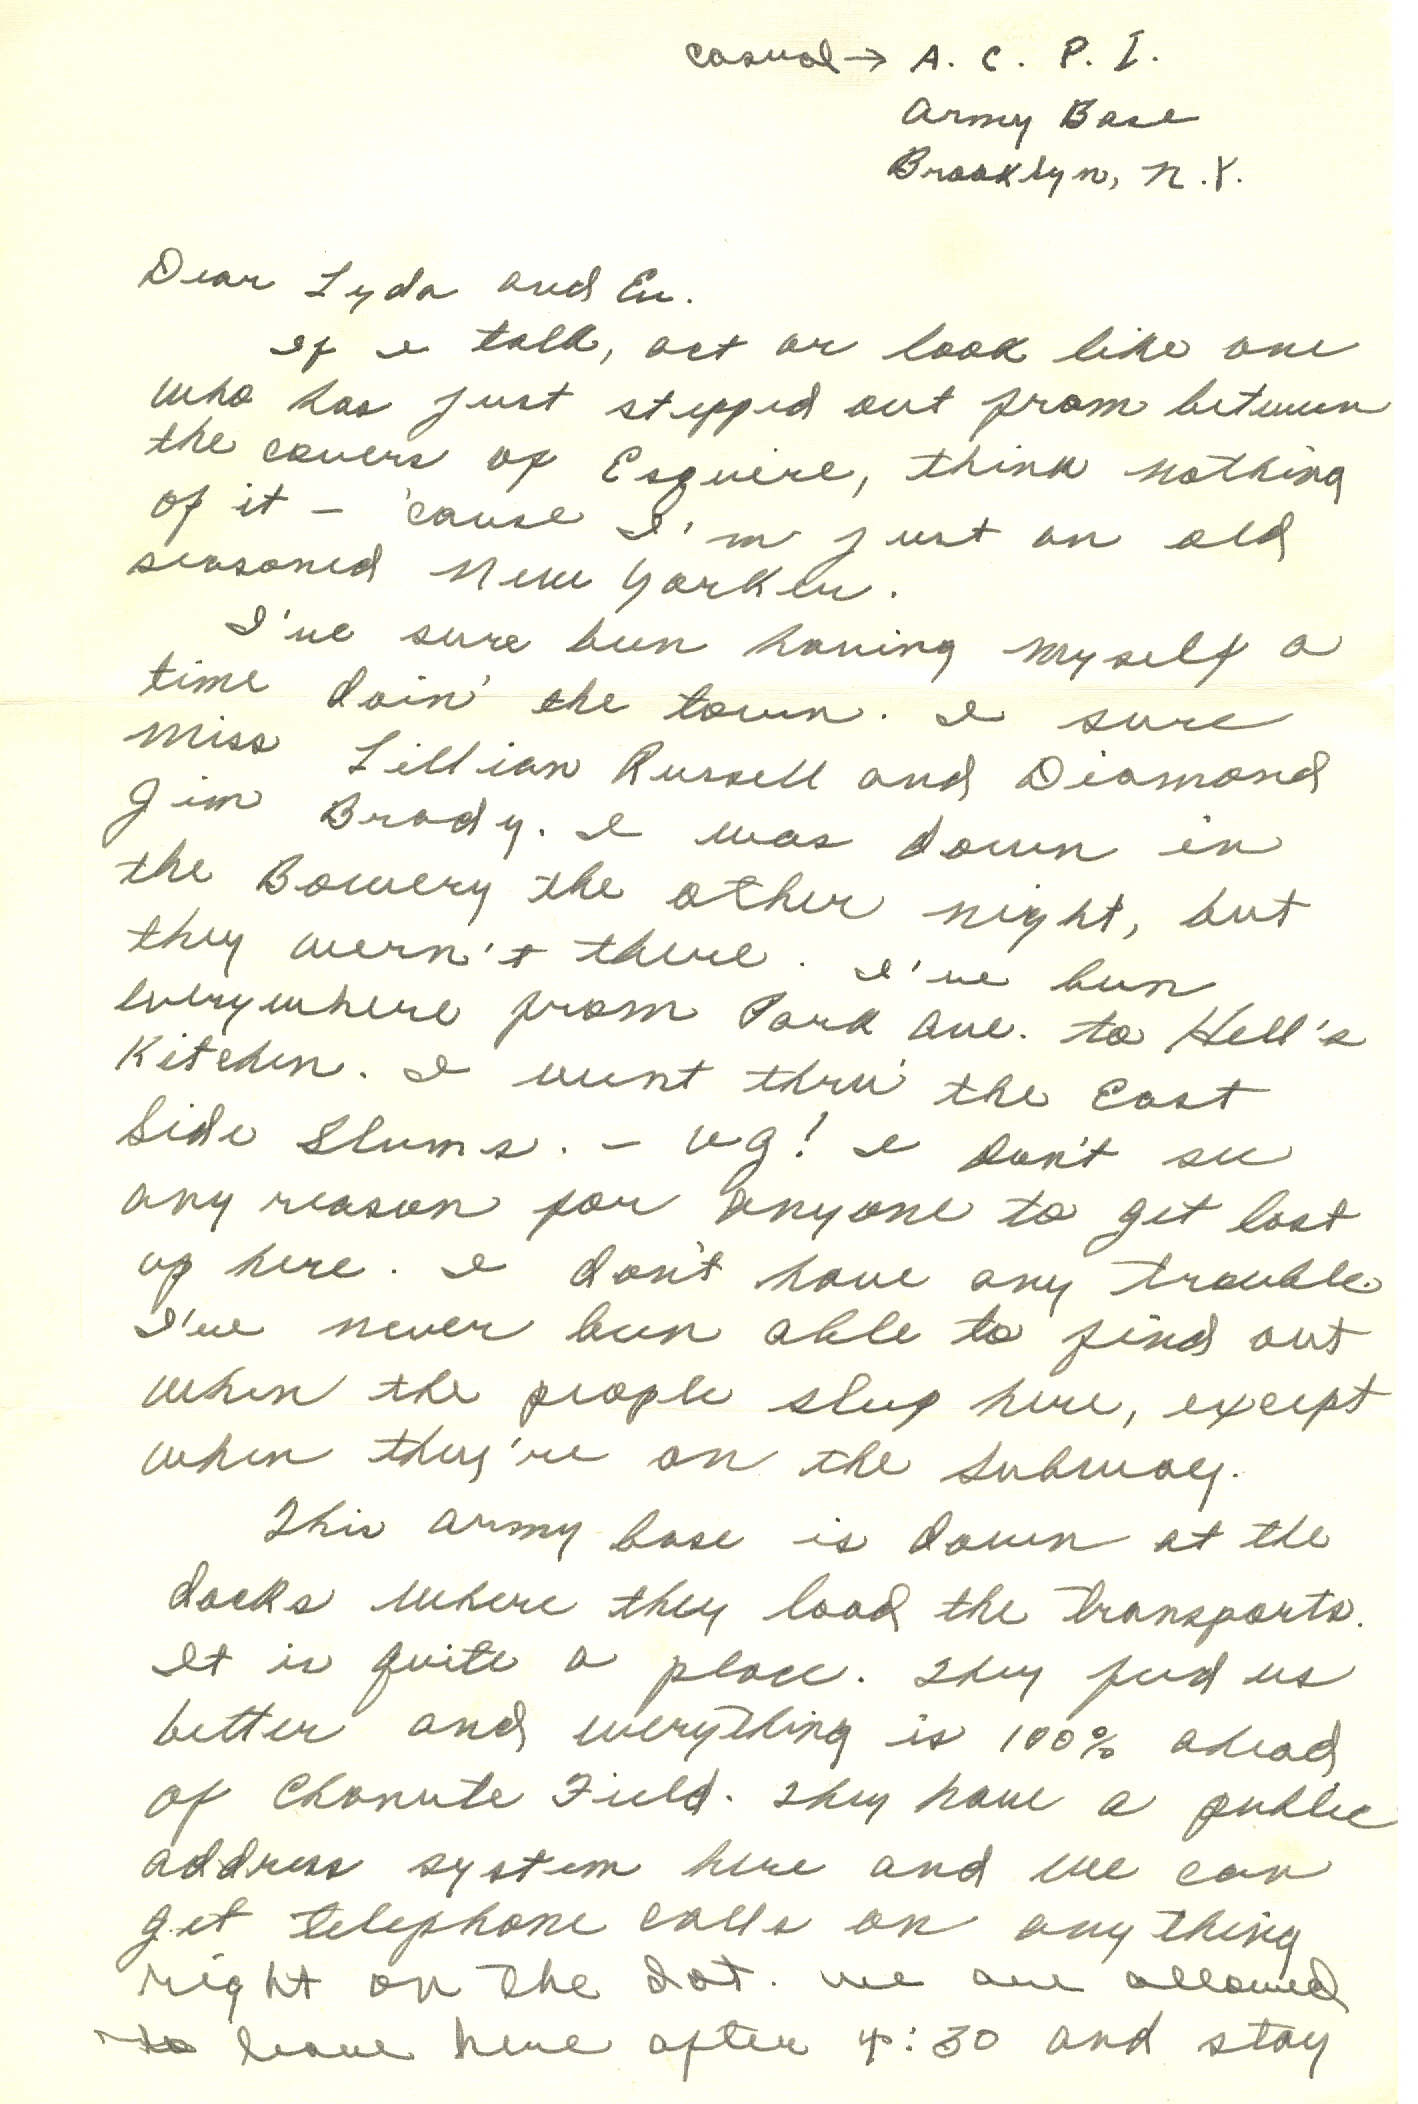 Casual → A. C. P. I.
Army Base
Brooklyn, N.Y.
Dear Lyda and Ev.
If I talk, act or look like one
who has just stepped out from between
the covers of Esquire, think nothing
of it – 'cause I'm just an old
seasoned New Yorker.
I've sure been having myself a
time doin' the town. I sure
miss Lillian Russell and Diamond
Jim Brady. I was down in
the Bowery the other night, but
they wern't there. I've been
everywhere from Park Ave. to Hell's
Kitchen. I went thru' the East
Side Slums. – Ug! I don't see
any reason for anyone to get lost
up here. I don't have any trouble.
I've never been able to find out
when the people sleep here, except
when they're on the Subway.
This army base is down at the
docks where they load the transports.
It is quite a place. They feed us
better and everything is 100% ahead
of Chanute Field. They have a public
address system here and we can
get telephone calls or anything
right on the dot. We are allowed
to leave here after 4:30 and stay